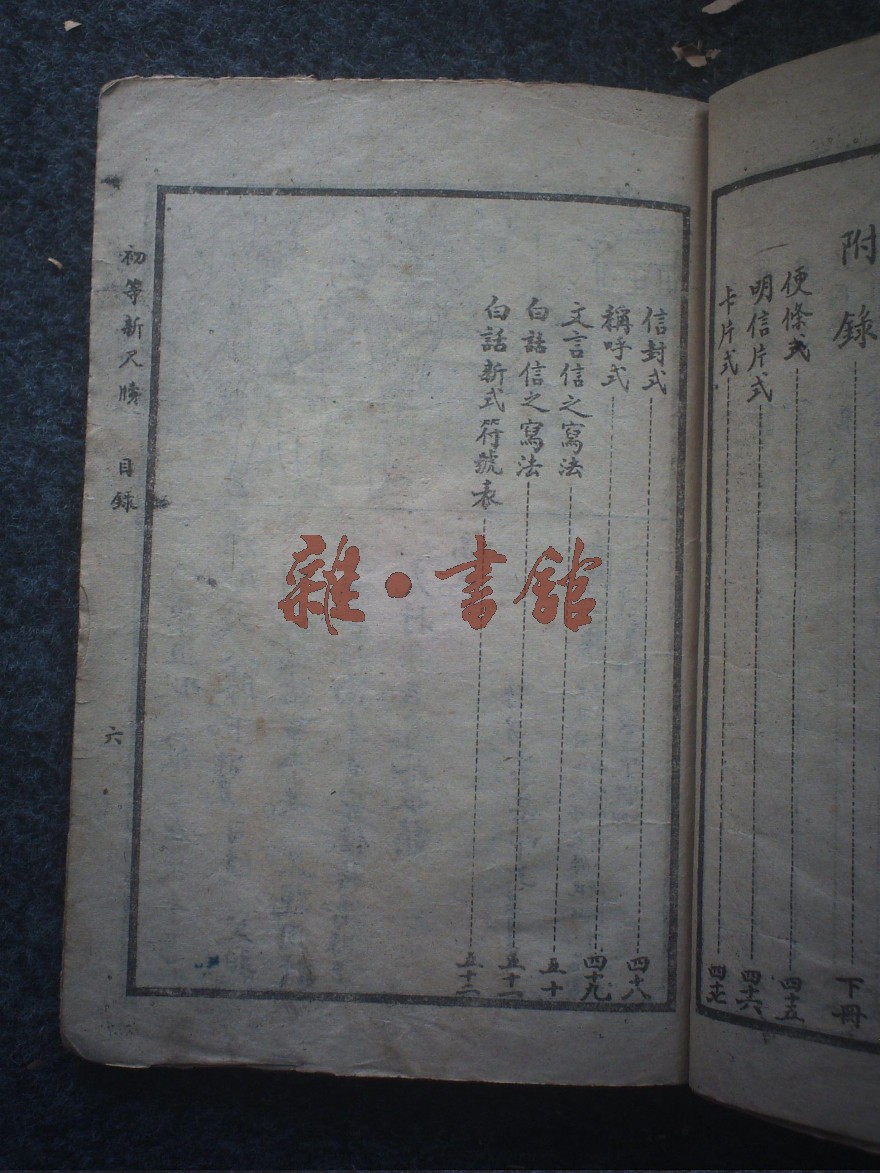 附錄 下冊
便條式 四十五
明信片式 四十六
卡片式 四十七
信封式 四十八
稱呼式 四十九
文言信之寫法 五十
白話信之寫法 五十一
白話新式符號表 五十二
初等新尺牘 目錄 六
雜·書館